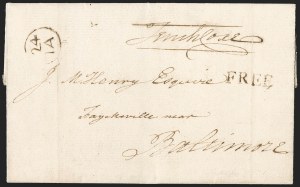 24
IA
J. McHenry Esquire
FREE
Fayetteville near
Baltimore